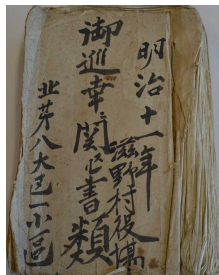 明治十一年
滋野村役場
御巡幸ニ関スル書類
北第八大区一小区